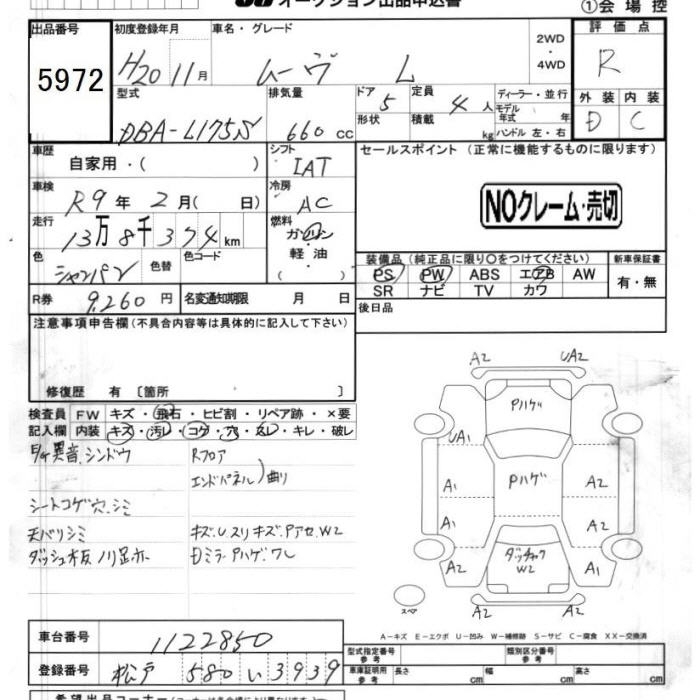 オークション出品申込書
①会場控
出品番号
5972
初度登録年月
H20 11月
車名・グレード
ムーヴ L
2WD
・
4WD
評価点
R
型式
DBA-L175S
排気量
660 cc
ドア 5
形状
定員 4 人
積載 kg
ディーラー・並行
モデル年式 年
ハンドル 左・右
外装 内装
D C
車歴
自家用・( )
シフト
IAT
セールスポイント (正常に機能するものに限ります)
車検
R9年 2月( 日)
冷房
AC
NOクレーム・売切
走行
13万8千374km
燃料
ガソリン
・
軽油
・( )
色
シャンパン
色替
色コード
装備品 (純正品に限り○をつけてください)
新車保証書
PS PW ABS エアB AW
SR ナビ TV カワ
有・無
R券 9,260 円
名変通知期限 月 日
後日品
注意事項申告欄(不具合内容等は具体的に記入して下さい)
修復歴 有 〔箇所 〕
検査員 FW キズ・飛石・ヒビ割・リペア跡・×要
記入欄 内装 キズ・汚レ・コゲ・穴・スレ・キレ・破レ
異音.シンドウ
Rフロア
エンドパネル)曲り
シートコゲ穴.シミ
天バリシミ
キズ.U.スリキズ.Pアセ.W2
Dミラ-Pハゲ.ワレ
A2 UA2
Pハゲ
UA1
A1 Pハゲ A2
A1 A1
A2 W2 A1
A2 A2
スペア
A-キズ E-エクボ U-凹み W-補修跡 S-サビ C-腐食 XX-交換済
車台番号 1122850
登録番号 松戸 580 い 3939
型式指定番号
参考
類別区分番号
参考
車庫証明用
参考
長さ cm 幅 cm 高さ cm
希望出品コーナー